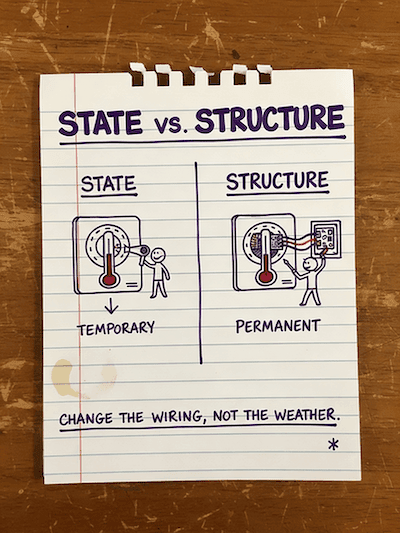 STATE vs. STRUCTURE
STATE
TEMPORARY
STRUCTURE
PERMANENT
CHANGE THE WIRING, NOT THE WEATHER.
*